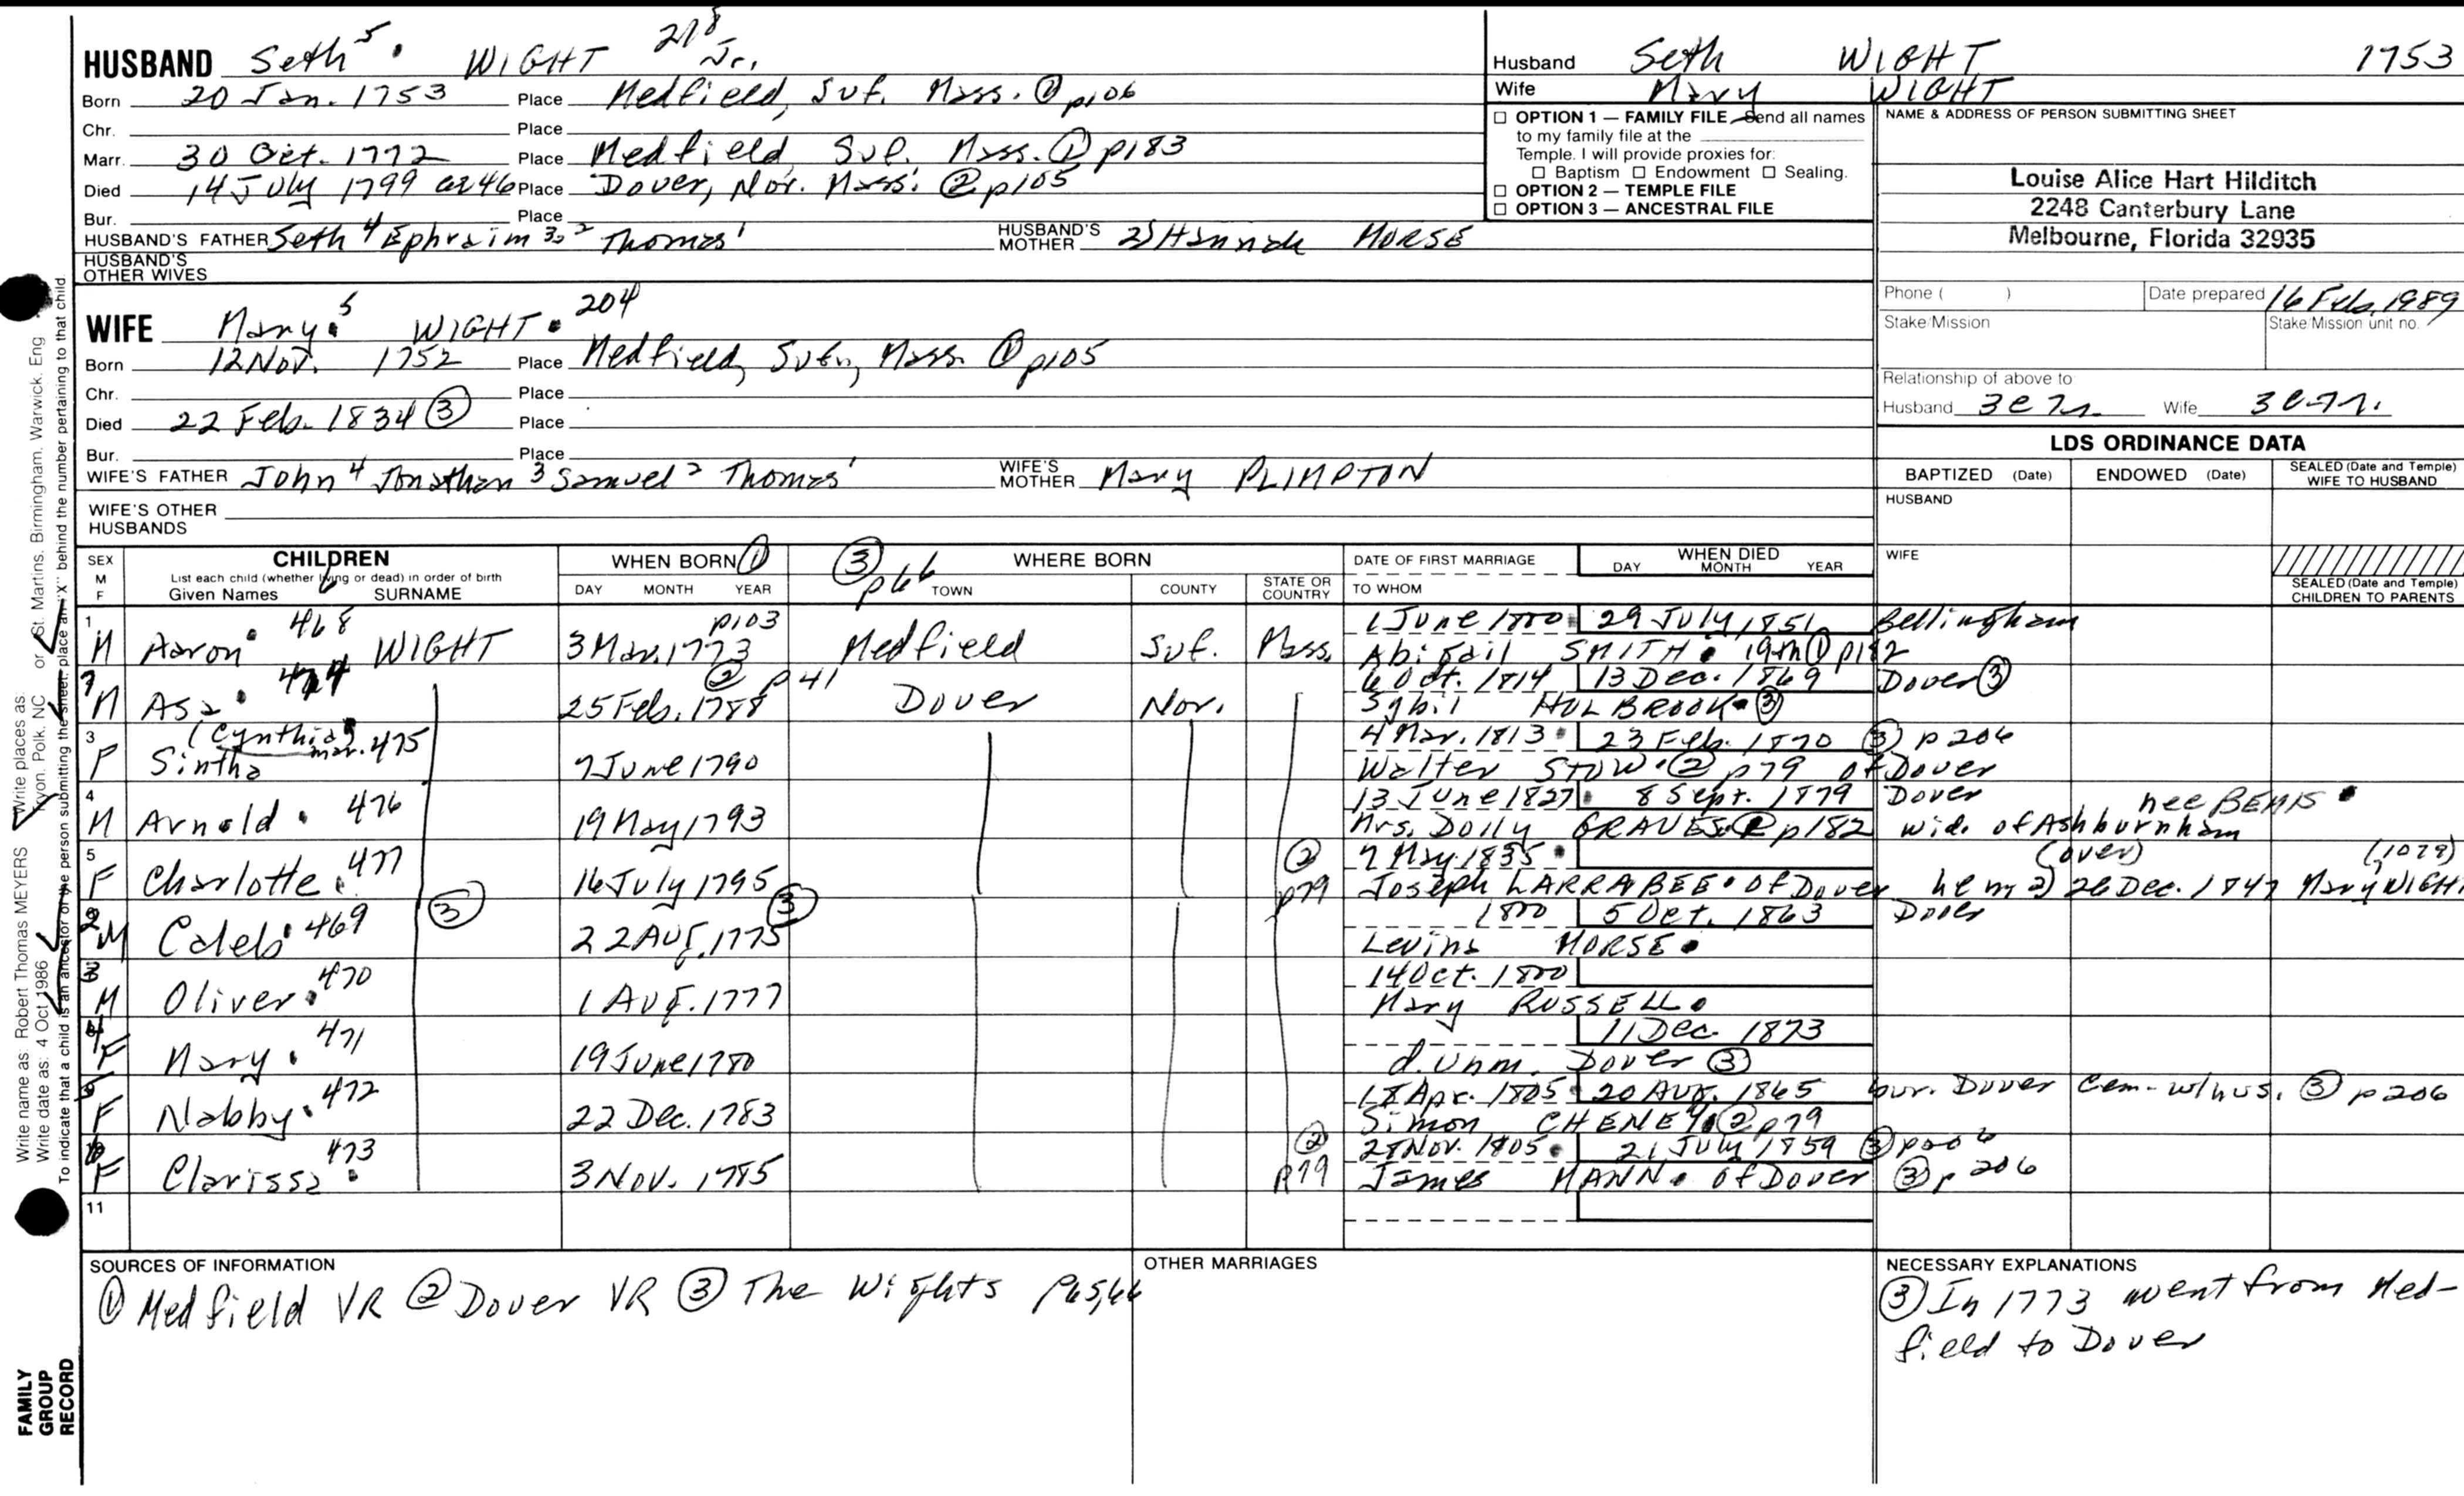 HUSBAND Seth⁵ • WIGHT Jr.
Born 20 Jan. 1753 Place Medfield, Suf. Mass. ① p106
Chr. Place
Marr. 30 Oct. 1772 Place Medfield Suf. Mass. ① p183
Died 14 July 1799 ae 46 Place Dover, Nor. Mass. ② p105
Bur. Place
HUSBAND'S FATHER Seth⁴ Ephraim³,² Thomas¹ HUSBAND'S MOTHER 2) Hannah MORSE
HUSBAND'S OTHER WIVES
WIFE Mary⁵ • WIGHT • 204
Born 12 Nov. 1752 Place Medfield, Suf., Mass. ① p105
Chr. Place
Died 22 Feb. 1834 ③ Place
Bur. Place
WIFE'S FATHER John⁴ Jonathan³ Samuel² Thomas¹ WIFE'S MOTHER Mary PLIMPTON
WIFE'S OTHER HUSBANDS
Husband Seth WIGHT 1753
Wife Mary WIGHT
☐ OPTION 1 — FAMILY FILE Send all names
to my family file at the
Temple. I will provide proxies for:
☐ Baptism ☐ Endowment ☐ Sealing.
☐ OPTION 2 — TEMPLE FILE
☐ OPTION 3 — ANCESTRAL FILE
NAME & ADDRESS OF PERSON SUBMITTING SHEET
Louise Alice Hart Hilditch
2248 Canterbury Lane
Melbourne, Florida 32935
Phone ( ) Date prepared 16 Feb. 1989
Stake/Mission Stake/Mission unit no.
Relationship of above to
Husband Wife
LDS ORDINANCE DATA
BAPTIZED (Date) ENDOWED (Date) SEALED (Date and Temple) WIFE TO HUSBAND
HUSBAND
WIFE
SEALED (Date and Temple) CHILDREN TO PARENTS
SEX M F CHILDREN WHEN BORN ① ③ p66 WHERE BORN DATE OF FIRST MARRIAGE WHEN DIED
List each child (whether living or dead) in order of birth DAY MONTH YEAR
Given Names 6 SURNAME DAY MONTH YEAR TOWN COUNTY STATE OR COUNTRY TO WHOM
1 468 p103 1 June 1800 29 July 1851 Bellingham
M Aaron • WIGHT 3 Mar. 1773 Medfield Suf. Mass. Abigail SMITH • 19th ① p182
7 474 ② p41 6 Oct. 1814 13 Dec. 1869 Dover ③
M Asa • 25 Feb. 1788 Dover Nor. Sybil HOLBROOK • ③
3 (Cynthia) mar. 475 4 Mar. 1813 23 Feb. 1870 ③ p206
F Sintha 7 June 1790 Walter STOW • ② p79 of Dover
4 476 13 June 1827 8 Sept. 1879 Dover nee BEMIS •
M Arnold • 19 May 1793 Mrs. Dolly GRAVES ② p182 wid. of Ashburnham
5 477 ② 7 May 1835 • (over) (1079)
F Charlotte • 16 July 1795 p79 Joseph LARRABEE • of Dover he m 2) 26 Dec. 1847 Mary WIGHT
2 469 ③ ③ 1800 5 Oct. 1863 Dover
M Caleb • 22 Aug. 1775 Levina MORSE •
3 470 14 Oct. 1800
M Oliver • 1 Aug. 1777 Mary RUSSELL •
4 471 11 Dec. 1873
F Mary • 19 June 1780 d. unm. Dover ③
5 472 18 Apr. 1805 20 Aug. 1865 bur. Dover Cem. w/hus. ③ p206
F Nabby • 22 Dec. 1783 Simon CHENEY • ② p79
473 ② 28 Nov. 1805 • 21 July 1859 ③ p206
F Clarissa • 3 Nov. 1785 p79 James MANN • of Dover ③ p206
11
SOURCES OF INFORMATION
① Medfield VR ② Dover VR ③ The Wights p65,66
OTHER MARRIAGES
NECESSARY EXPLANATIONS
③ In 1773 went from Med-
field to Dover
Write name as: Robert Thomas MEYERS Write places as: Tryon, Polk, NC or St. Martins, Birmingham, Warwick, Eng
Write date as: 4 Oct 1986
To indicate that a child is an ancestor of the person submitting the sheet, place an "X" behind the number pertaining to that child.
FAMILY
GROUP
RECORD